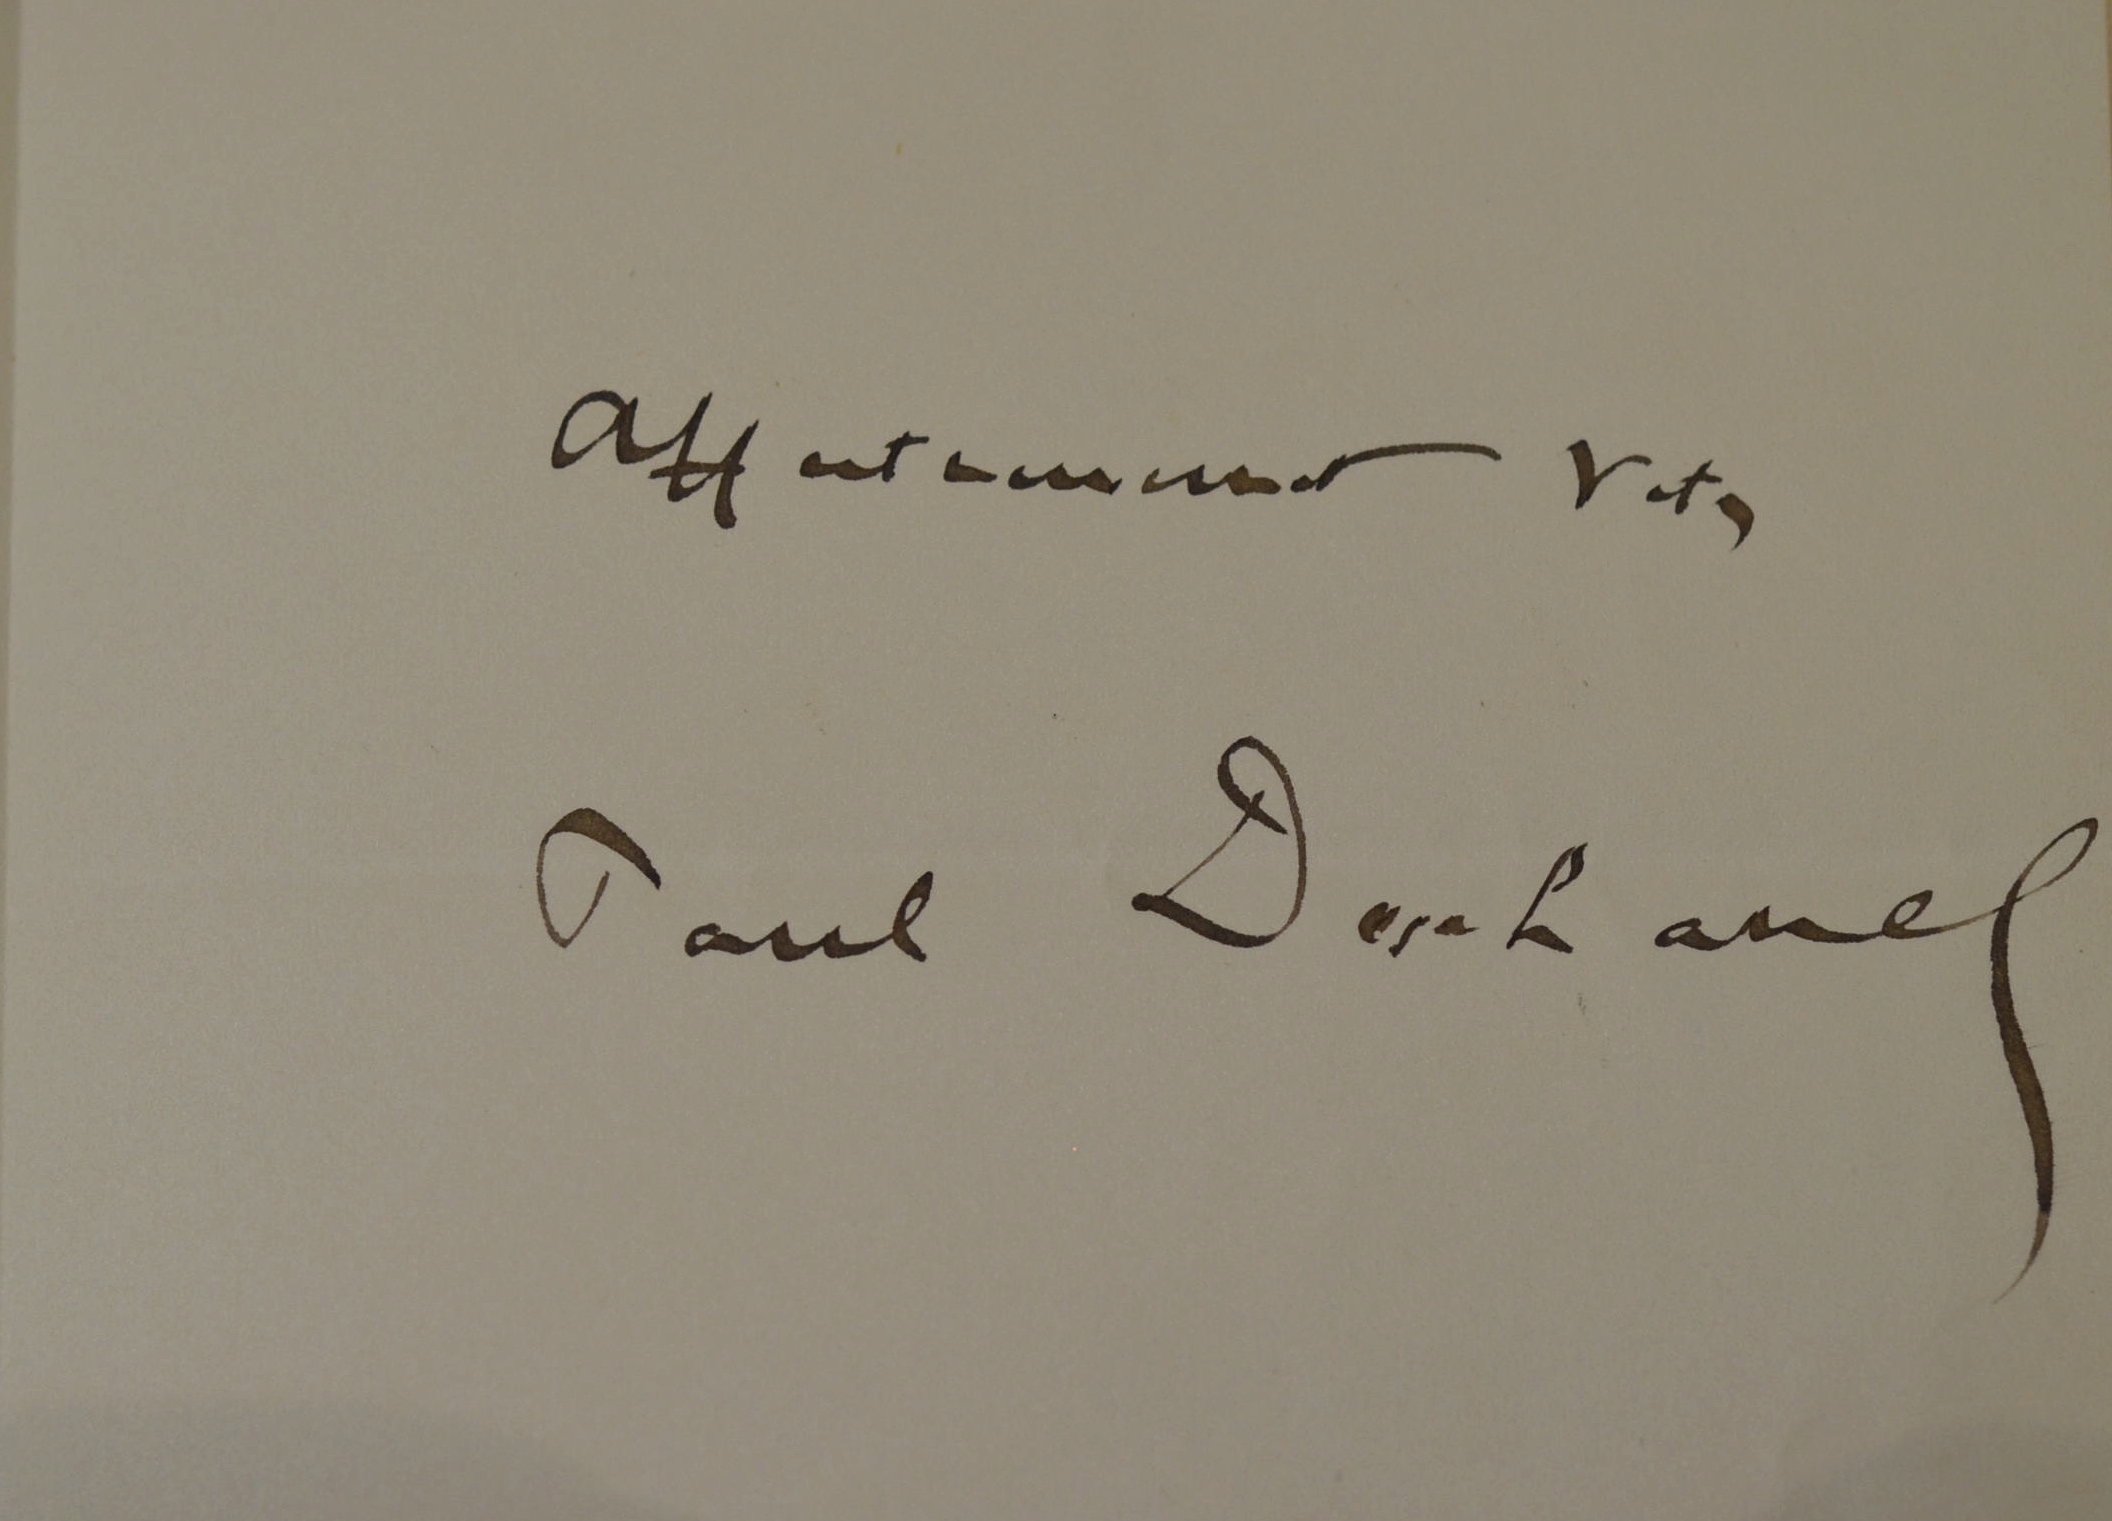 Affectueusement Votre,
Paul Deschanel